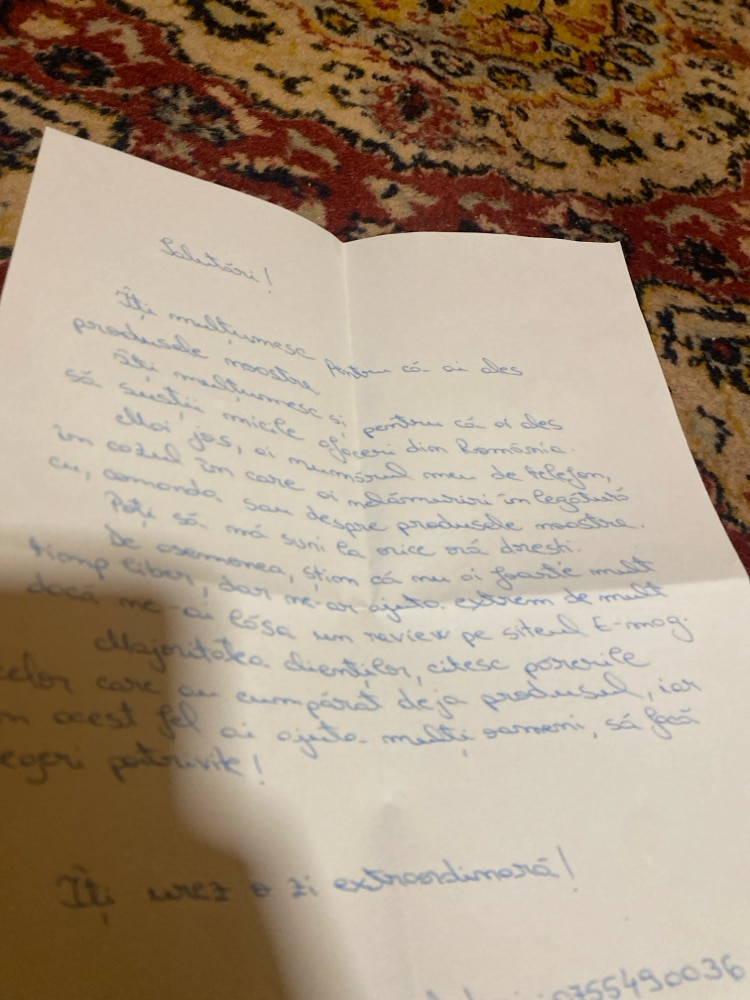 Salutări!
Îți mulțumesc pentru că ai ales
produsele noastre
Îți mulțumesc și pentru că ai ales
să susții micile afaceri din România.
Mai jos, ai numărul meu de telefon,
în cazul în care ai nelămuriri în legătură
cu, comanda sau despre produsele noastre.
Poți să mă suni la orice oră dorești.
De asemenea, știm că nu ai foarte mult
timp liber, dar ne-ar ajuta extrem de mult
dacă ne-ai lăsa un review pe siteul E-mag.
Majoritatea clienților, citesc părerile
celor care au cumpărat deja produsul, iar
în acest fel ai ajuta mulți oameni, să facă
alegeri potrivite!
Îți urez o zi extraordinară!
0755490036